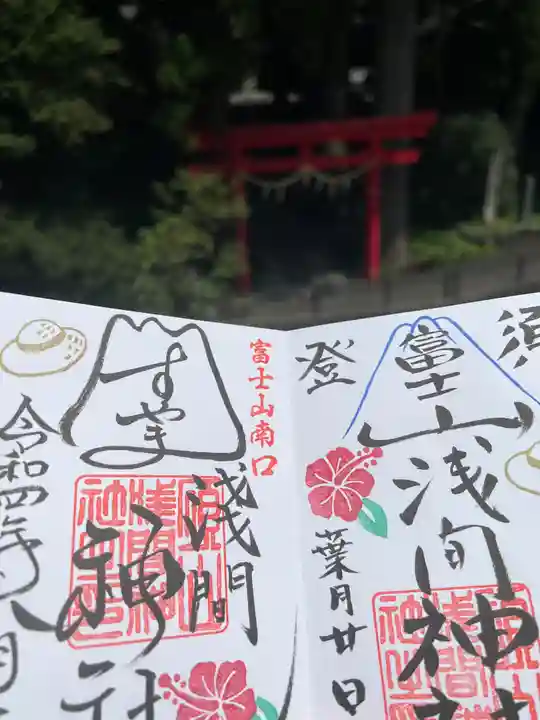 須
富士山
浅间神社
登
葉月廿日
富士山南口
すやま
淺間
神社
令和四年八月